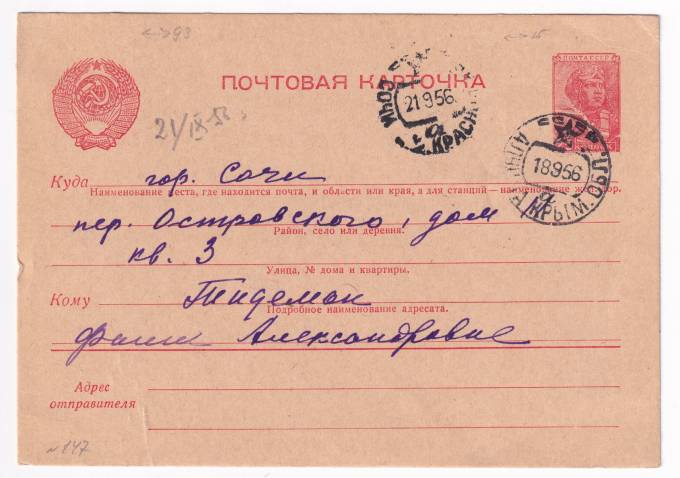 93
15
ПОЧТОВАЯ КАРТОЧКА
ПОЧТА СССР
СОЧИ
21 9 56
КРАСН
21/IX-56
18 9 56
КРЫМ. ОБЛ
Куда гор. Сочи
Наименование места, где находится почта, и области или края, а для станций – наименование жел. дор.
пер. Островского, дом
Район, село или деревня.
кв. 3
Улица, № дома и квартиры.
Кому Тидеман
Подробное наименование адресата.
Фаине Александровне
Адрес
отправителя
~147